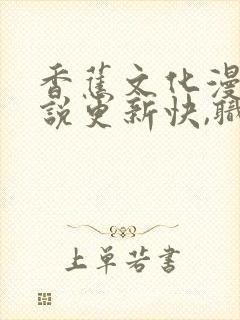 香蕉文化漫
說更新快,職
上单若書